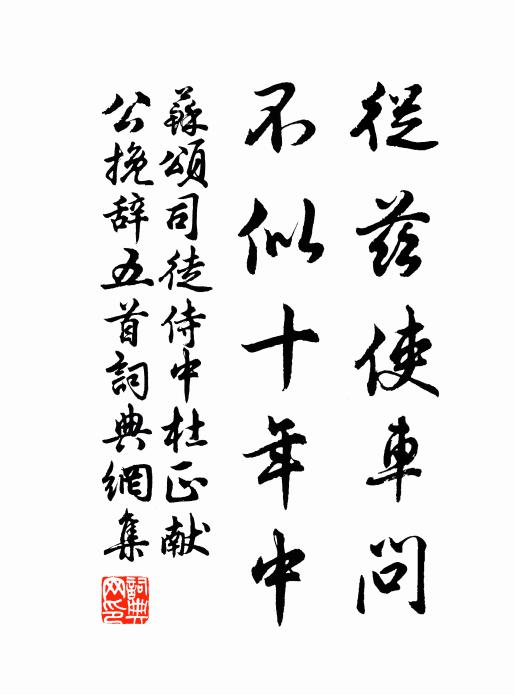 從茲使車問
不似十年中
蘇頌司徒侍中杜正献
公挽辞五首詞典網集
詞典網印